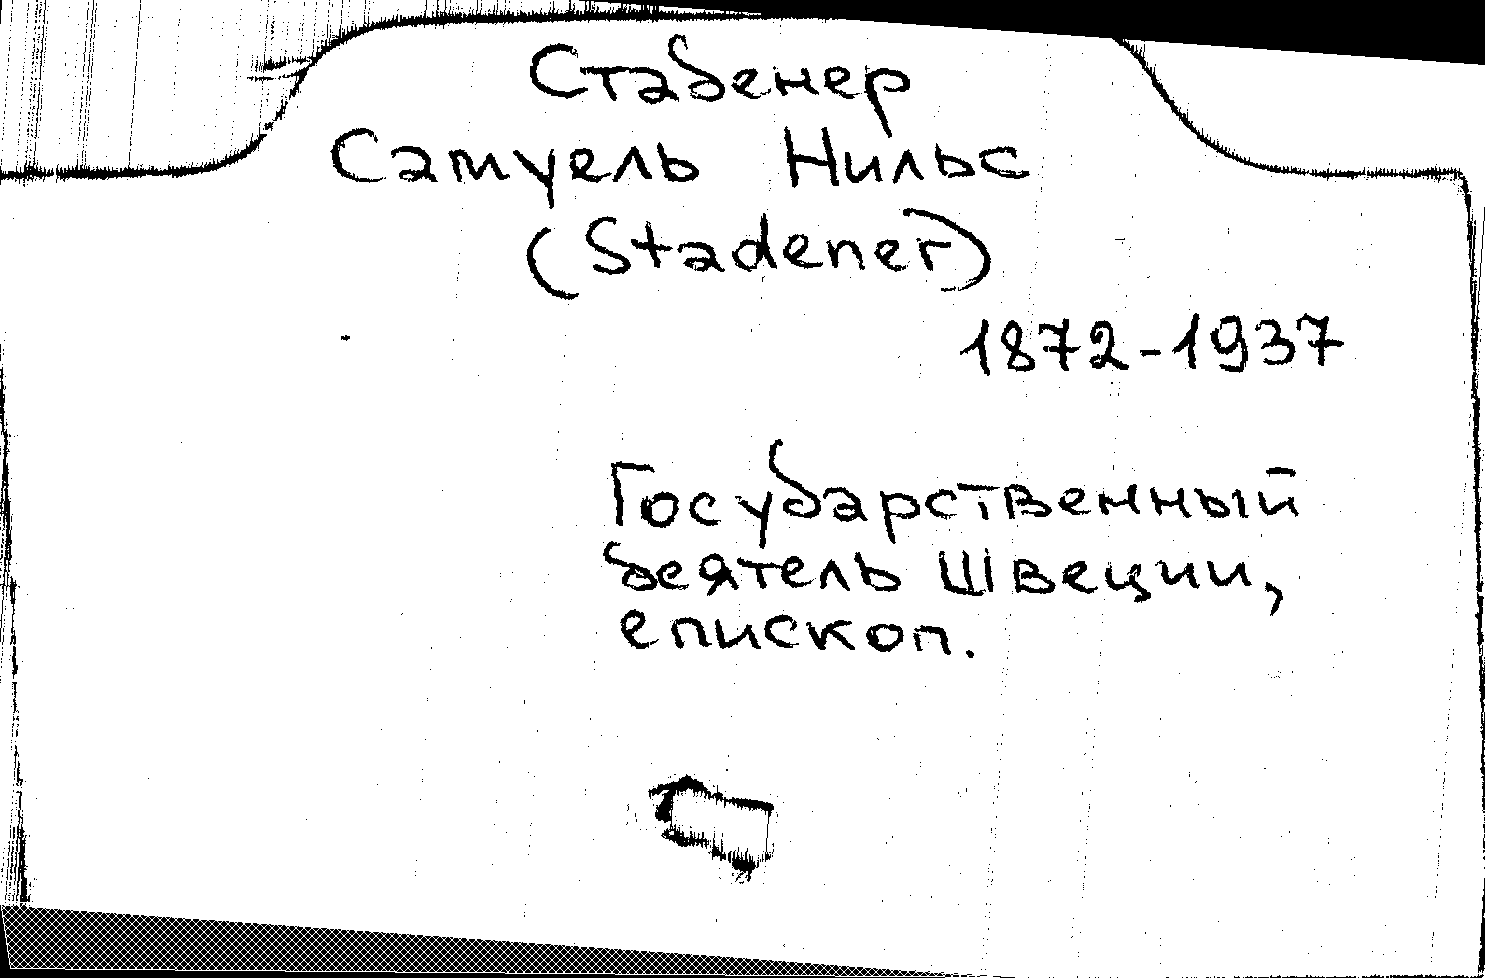 Стаденер
Самуель Нильс
(Stadener)
1872-1937
Государственный
деятель Швеции,
епископ.